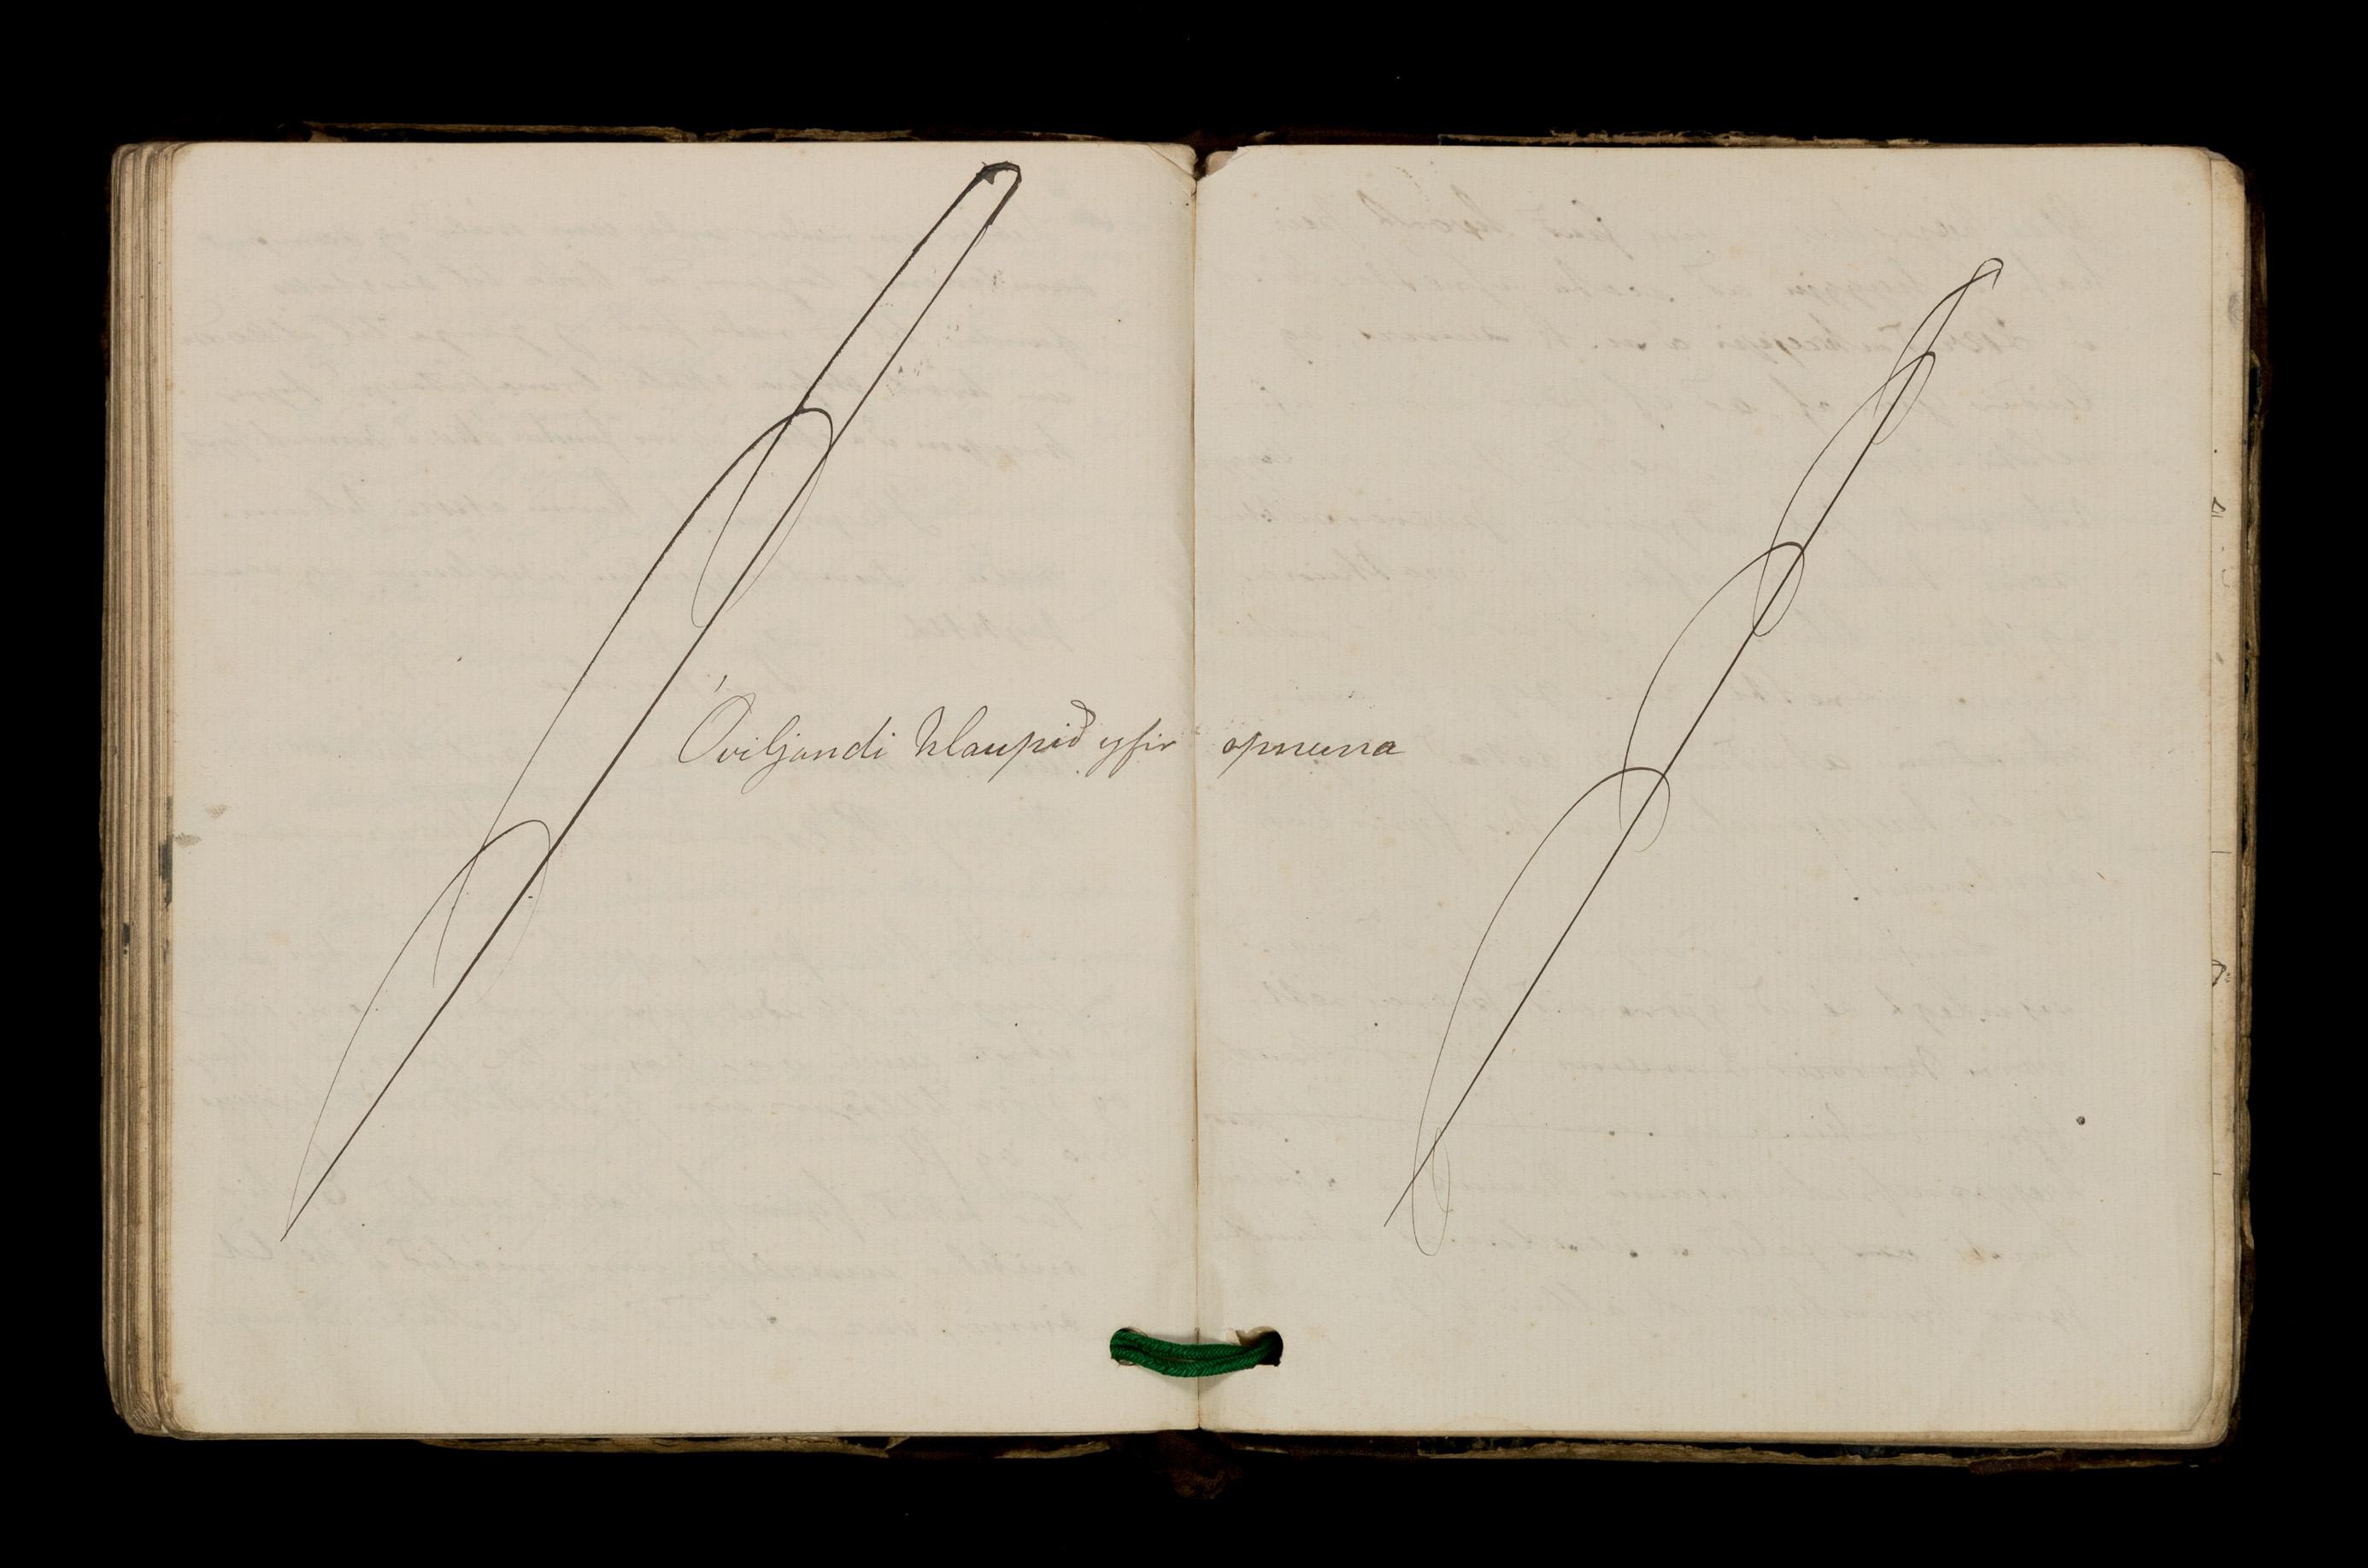 Óviljandi hlaupið yfir opnuna